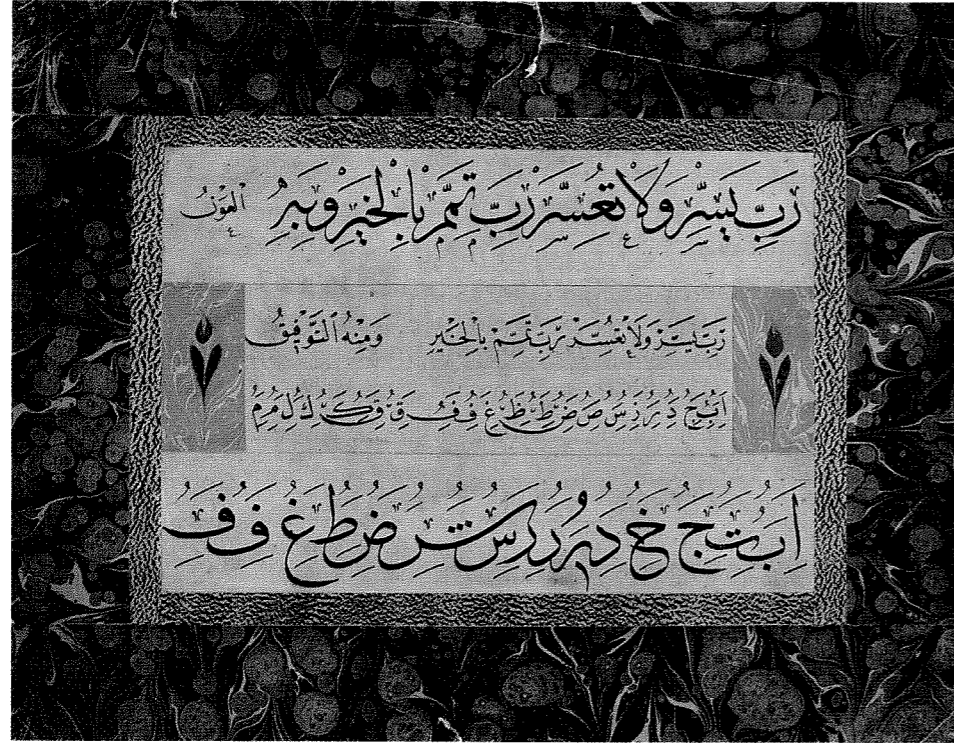 رَبِّ يَسِّرْ وَلَا تُعَسِّرْ رَبِّ تَمِّمْ بِالْخَيْرِ وَبِهِ الْعَوْنُ
رَبِّ يَسِّرْ وَلَا تُعَسِّرْ رَبِّ تَمِّمْ بِالْخَيْرِ وَمِنْهُ التَّوْفِيقُ
ا ب ج د ر س ص ض ط ظ ع ف ق ك ل م
ا ب ت ج خ د ر س ش ض ط غ ف ف